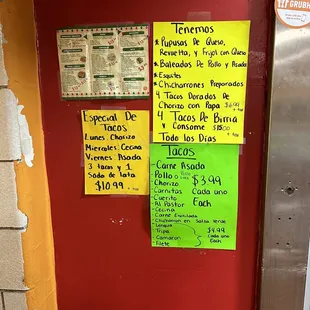 GRUBH
Tenemos
* Pupusas De Queso,
Revuelta, y Frijol con Queso
* Baleadas De Pollo y Asada
* Esquites
* Chicharrones Preparados
* 4 Tacos Dorados De
Chorizo con Papa
* 4 Tacos De Birria
y Consome $15.00
Todo los Dias
Especial De
Tacos
Lunes Chorizo
Miercoles: Cecina
Viernes Asada
3 tacos y 1
Soda de lata
$10.99 + tax
Tacos
- Carne Asada
- Pollo
- Chorizo $3.99
- Carnitas Cada uno
- Cuerito Each
- Al Pastor
- Cecina
- Carne Enchilada
- Chicharron en Salsa Verde
- Lengua
- Tripa $4.99
- Camaron Cada uno
- Filete Each